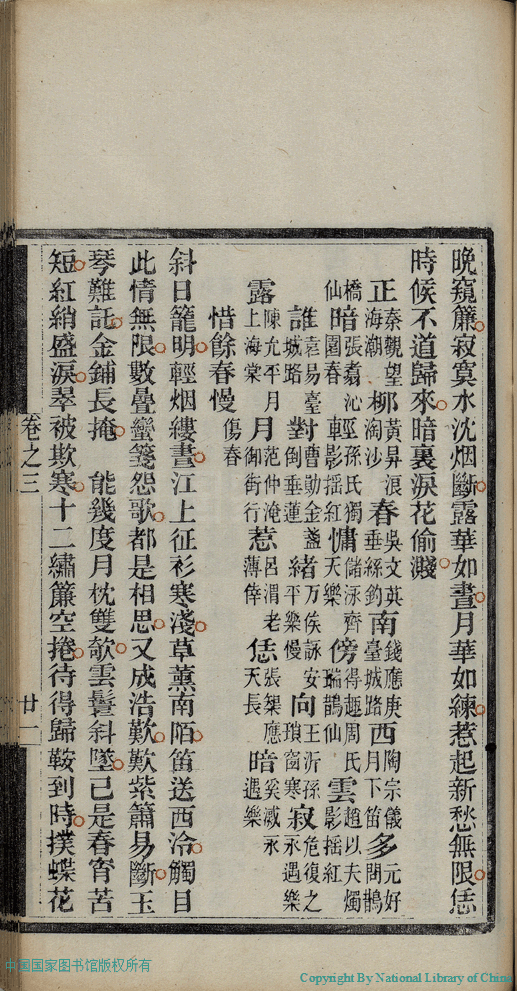 晚窺簾寂寞水沈烟斷露華如晝月華如練惹起新愁無限恁
時候不道歸來暗裏淚花偷濺
正秦觀望海潮柳黃昇浪淘沙春吳文英垂絲釣南錢應庚臺城路西陶宗儀月下笛多元好問鵲
橋仙暗張翥沁園春輕孫氏獨影搖紅慵儲泳齊天樂傍得趣周氏瑞鵲仙雲趙以夫燭影搖紅
誰袁易臺城路對曹勛金盞倒垂蓮緒万俟詠安平樂慢向王沂孫瑣窗寒寂危復之永遇樂
露陳允平月上海棠月范仲淹御街行惹呂渭老薄倖恁張榘應天長暗奚㴒永遇樂
惜餘春慢 傷春
斜日籠明輕烟縷晝江上征衫寒淺草薰南陌笛送西泠觸目
此情無限數疊蠻箋怨歌都是相思又成浩歎歎紫簫易斷玉
琴難託金鋪長掩 能幾度月枕雙欹雲鬟斜墜已是春宵苦
短紅綃盛淚翠被欺寒十二繡簾空捲待得歸鞍到時撲蝶花
卷之三 廿一
中国国家图书馆版权所有
Copyright By National Library of China